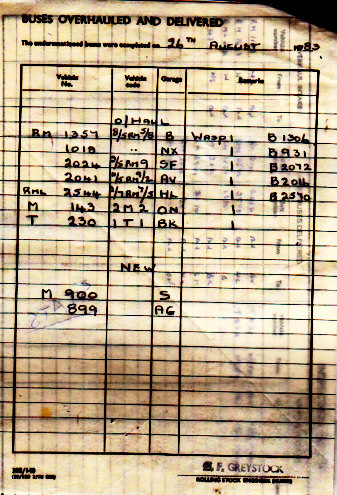 BUSES OVERHAULED AND DELIVERED
The undermentioned buses were completed on 26TH AUGUST 1983
Vehicle No. Vehicle code Garage Remarks
O/HAUL
RM 1357 8/5RM5/8 B WASP 1 B1306
1018 " NX 1 B931
2024 RM9 SF 1 B2072
2041 AV 1 B2016
RML 2544 HL 1 B2590
M 143 2M2 ON 1
T 230 1T1 BK 1
NEW
M 900 S
899 AG
F. GREYSTOCK
ROLLING STOCK ENGINEER (BUSES)